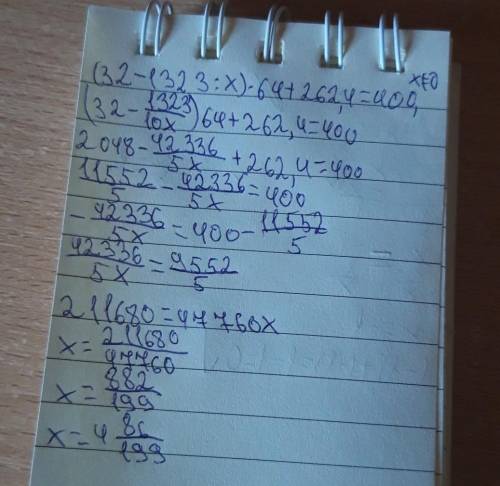 x≠0
(32-132,3:x)·64+262,4=400,
(32-1323/10x)64+262,4=400
2048-42336/5x+262,4=400
11552/5-42336/5x=400
-42336/5x=400-11552/5
42336/5x=9552/5
211680=47760x
x=211680/47760
x=882/199
x=4 86/199